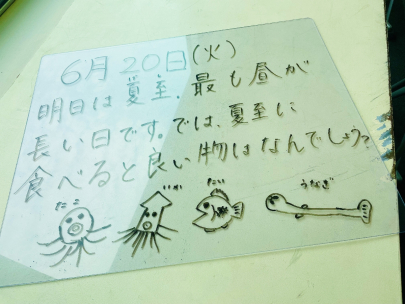 6月20日(火)
明日は夏至、最も昼が
長い日です。では、夏至に
食べると良い物はなんでしょう?
たこ いか たい うなぎ